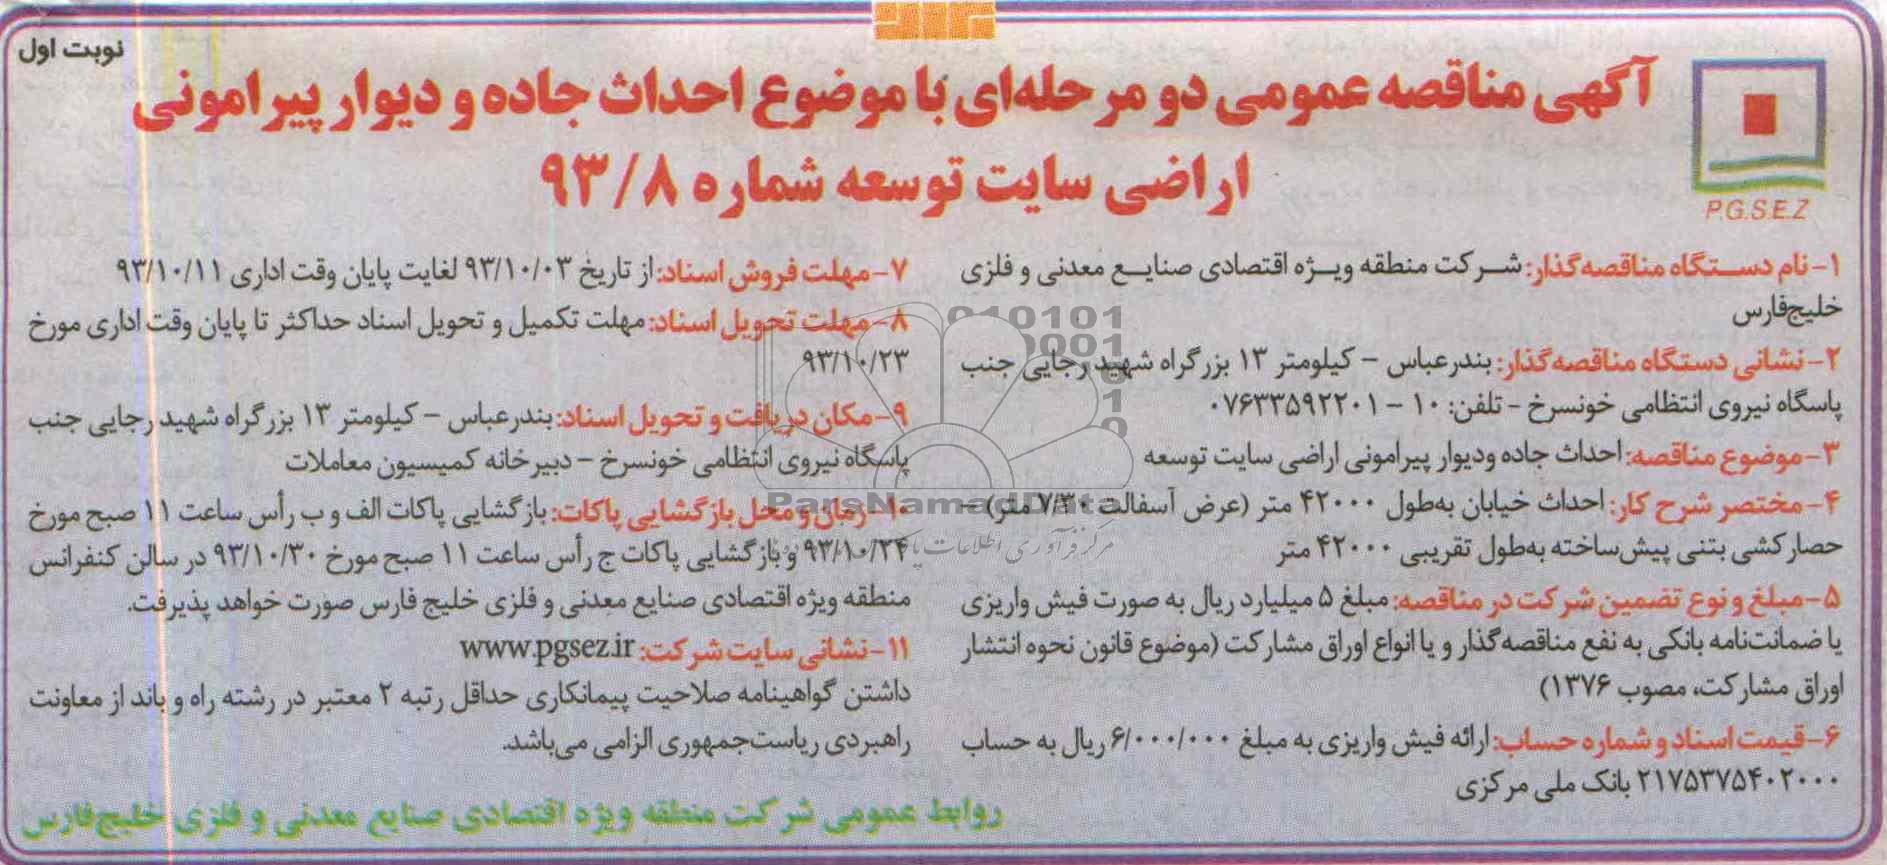 نوبت اول
آگهی مناقصه عمومی دو مرحله‌ای با موضوع احداث جاده و دیوار پیرامونی
اراضی سایت توسعه شماره ۹۳/۸
P.G.S.E.Z
۱- نام دستگاه مناقصه‌گذار: شرکت منطقه ویژه اقتصادی صنایع معدنی و فلزی
خلیج‌فارس
۲- نشانی دستگاه مناقصه‌گذار: بندرعباس - کیلومتر ۱۳ بزرگراه شهید رجایی جنب
پاسگاه نیروی انتظامی خونسرخ - تلفن: ۱۰ - ۰۷۶۳۳۵۹۲۲۰۱
۳- موضوع مناقصه: احداث جاده ودیوار پیرامونی اراضی سایت توسعه
۴- مختصر شرح کار: احداث خیابان به‌طول ۴۲۰۰۰ متر (عرض آسفالت ۷/۳۰ متر) -
حصارکشی بتنی پیش‌ساخته به‌طول تقریبی ۴۲۰۰۰ متر
۵- مبلغ و نوع تضمین شرکت در مناقصه: مبلغ ۵ میلیارد ریال به صورت فیش واریزی
یا ضمانت‌نامه بانکی به نفع مناقصه‌گذار و یا انواع اوراق مشارکت (موضوع قانون نحوه انتشار
اوراق مشارکت، مصوب ۱۳۷۶)
۶- قیمت اسناد و شماره حساب: ارائه فیش واریزی به مبلغ ۶/۰۰۰/۰۰۰ ریال به حساب
۲۱۷۵۳۷۵۴۰۲۰۰۰ بانک ملی مرکزی
۷- مهلت فروش اسناد: از تاریخ ۹۳/۱۰/۰۳ لغایت پایان وقت اداری ۹۳/۱۰/۱۱
۸- مهلت تحویل اسناد: مهلت تکمیل و تحویل اسناد حداکثر تا پایان وقت اداری مورخ
۹۳/۱۰/۲۳
۹- مکان دریافت و تحویل اسناد: بندرعباس - کیلومتر ۱۳ بزرگراه شهید رجایی جنب
پاسگاه نیروی انتظامی خونسرخ - دبیرخانه کمیسیون معاملات
۱۰- زمان و محل بازگشایی پاکات: بازگشایی پاکات الف و ب رأس ساعت ۱۱ صبح مورخ
۹۳/۱۰/۲۴ و بازگشایی پاکات ج رأس ساعت ۱۱ صبح مورخ ۹۳/۱۰/۳۰ در سالن کنفرانس
منطقه ویژه اقتصادی صنایع معدنی و فلزی خلیج فارس صورت خواهد پذیرفت.
۱۱- نشانی سایت شرکت: www.pgsez.ir
داشتن گواهینامه صلاحیت پیمانکاری حداقل رتبه ۲ معتبر در رشته راه و باند از معاونت
راهبردی ریاست‌جمهوری الزامی می‌باشد.
روابط عمومی شرکت منطقه ویژه اقتصادی صنایع معدنی و فلزی خلیج‌فارس
ParsNamadData